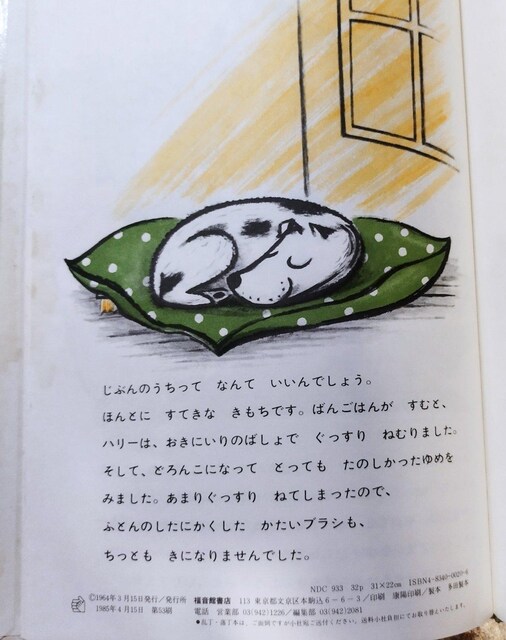 じぶんのうちって　なんて　いいんでしょう。
ほんとに　すてきな　きもちです。ばんごはんが　すむと、
ハリーは、おきにいりのばしょで　ぐっすり　ねむりました。
そして、どろんこになって　とっても　たのしかったゆめを
みました。あまりぐっすり　ねてしまったので、
ふとんのしたにかくした　かたいブラシも、
ちっとも　きになりませんでした。
NDC 933　32p　31×22cm　ISBN4-8340-0020-4
©1964年3月15日発行／発行所　福音館書店　113 東京都文京区本駒込6-6-3／印刷　製本
1985年4月15日　第53刷　電話　営業部 03(942)1226／編集部 03(942)2081
●乱丁・落丁本は、ご面倒ですが小社宛ご送付ください。送料小社負担にてお取り替えいたします。